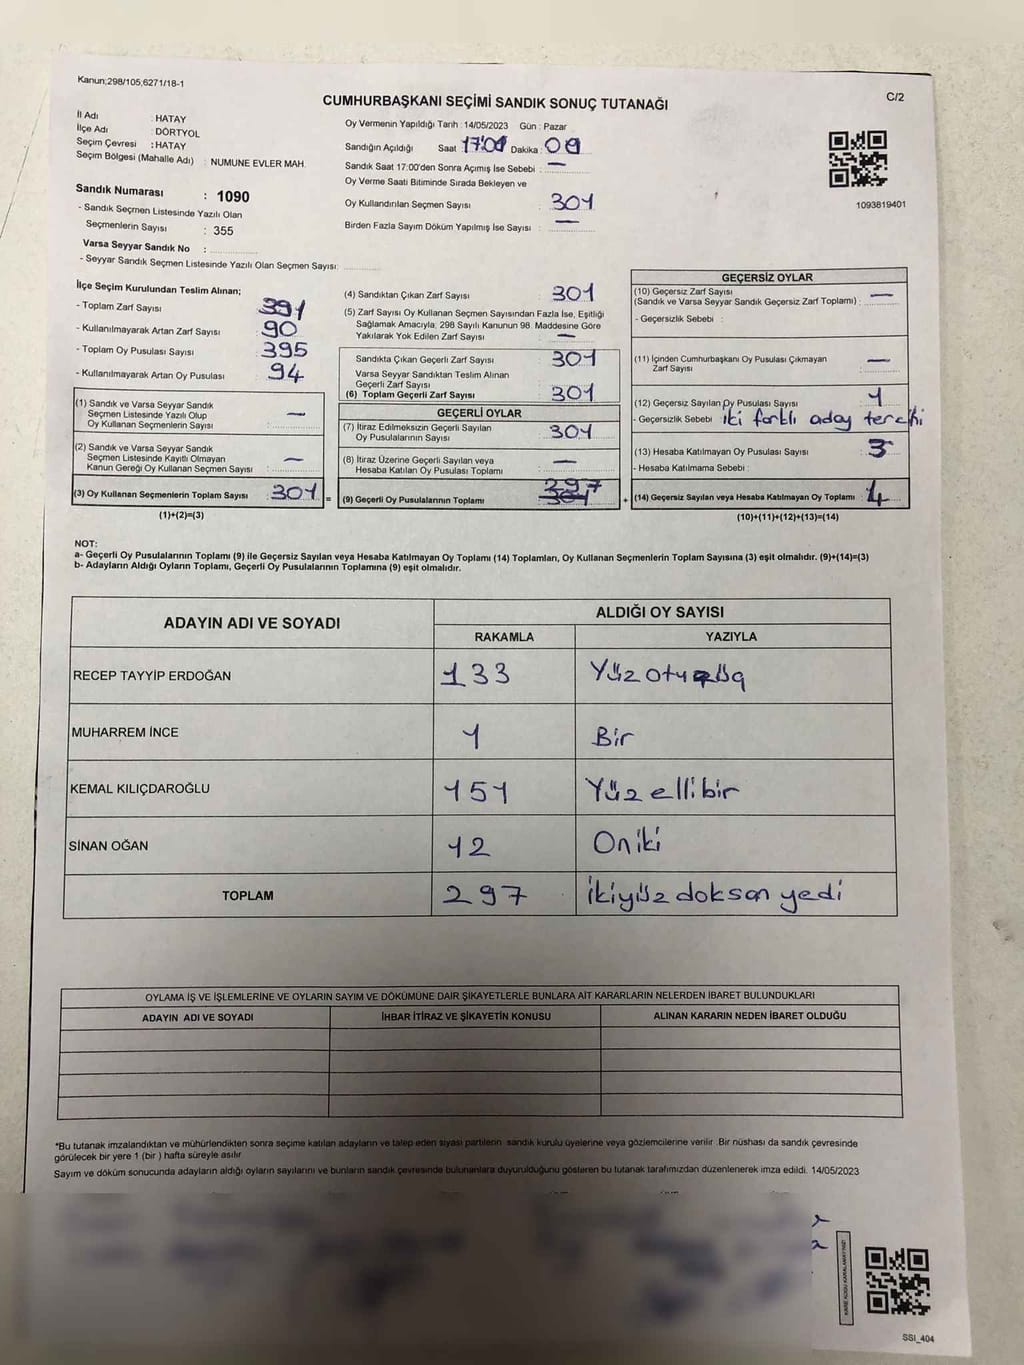 Kanun;298/105,6271/18-1
C/2
CUMHURBAŞKANI SEÇİMİ SANDIK SONUÇ TUTANAĞI
İl Adı : HATAY
İlçe Adı : DÖRTYOL
Seçim Çevresi : HATAY
Seçim Bölgesi (Mahalle Adı) : NUMUNE EVLER MAH.
Sandık Numarası : 1090
- Sandık Seçmen Listesinde Yazılı Olan
Seçmenlerin Sayısı : 355
Varsa Seyyar Sandık No :
- Seyyar Sandık Seçmen Listesinde Yazılı Olan Seçmen Sayısı:
Oy Vermenin Yapıldığı Tarih : 14/05/2023 Gün : Pazar
Sandığın Açıldığı Saat 17:01 Dakika:
Sandık Saat 17:00'den Sonra Açımış İse Sebebi : —
Oy Verme Saati Bitiminde Sırada Bekleyen ve
Oy Kullandırılan Seçmen Sayısı : 301
Birden Fazla Sayım Döküm Yapılmış İse Sayısı : —
1093819401
İlçe Seçim Kurulundan Teslim Alınan;
- Toplam Zarf Sayısı : 391
- Kullanılmayarak Artan Zarf Sayısı : 90
- Toplam Oy Pusulası Sayısı : 395
- Kullanılmayarak Artan Oy Pusulası : 94
(1) Sandık ve Varsa Seyyar Sandık
Seçmen Listesinde Yazılı Olup
Oy Kullanan Seçmenlerin Sayısı : —
(2) Sandık ve Varsa Seyyar Sandık
Seçmen Listesinde Kayıtlı Olmayan
Kanun Gereği Oy Kullanan Seçmen Sayısı : —
(3) Oy Kullanan Seçmenlerin Toplam Sayısı : 301 =
(1)+(2)=(3)
(4) Sandıktan Çıkan Zarf Sayısı : 301
(5) Zarf Sayısı Oy Kullanan Seçmen Sayısından Fazla İse, Eşitliği
Sağlamak Amacıyla, 298 Sayılı Kanunun 98. Maddesine Göre
Yakılarak Yok Edilen Zarf Sayısı : —
Sandıkta Çıkan Geçerli Zarf Sayısı : 301
Varsa Seyyar Sandıktan Teslim Alınan
Geçerli Zarf Sayısı :
(6) Toplam Geçerli Zarf Sayısı : 301
GEÇERLİ OYLAR
(7) İtiraz Edilmeksizin Geçerli Sayılan
Oy Pusulalarının Sayısı : 301
(8) İtiraz Üzerine Geçerli Sayılan veya
Hesaba Katılan Oy Pusulası Toplamı : —
(9) Geçerli Oy Pusulalarının Toplamı : 297 301 +
GEÇERSİZ OYLAR
(10) Geçersiz Zarf Sayısı
(Sandık ve Varsa Seyyar Sandık Geçersiz Zarf Toplamı) : —
- Geçersizlik Sebebi :
(11) İçinden Cumhurbaşkanı Oy Pusulası Çıkmayan
Zarf Sayısı : —
(12) Geçersiz Sayılan Oy Pusulası Sayısı : 1
- Geçersizlik Sebebi : iki farklı aday tercihi
(13) Hesaba Katılmayan Oy Pusulası Sayısı : 3
- Hesaba Katılmama Sebebi :
(14) Geçersiz Sayılan veya Hesaba Katılmayan Oy Toplamı : 4
(10)+(11)+(12)+(13)=(14)
NOT:
a- Geçerli Oy Pusulalarının Toplamı (9) ile Geçersiz Sayılan veya Hesaba Katılmayan Oy Toplamı (14) Toplamları, Oy Kullanan Seçmenlerin Toplam Sayısına (3) eşit olmalıdır. (9)+(14)=(3)
b- Adayların Aldığı Oyların Toplamı, Geçerli Oy Pusulalarının Toplamına (9) eşit olmalıdır.
ADAYIN ADI VE SOYADI ALDIĞI OY SAYISI
RAKAMLA YAZIYLA
RECEP TAYYİP ERDOĞAN 133
MUHARREM İNCE 1 Bir
KEMAL KILIÇDAROĞLU 151 Yüz elli bir
SİNAN OĞAN 12 On iki
TOPLAM 297 İkiyüz doksan yedi
OYLAMA İŞ VE İŞLEMLERİNE VE OYLARIN SAYIM VE DÖKÜMÜNE DAİR ŞİKAYETLERLE BUNLARA AİT KARARLARIN NELERDEN İBARET BULUNDUKLARI
ADAYIN ADI VE SOYADI İHBAR İTİRAZ VE ŞİKAYETİN KONUSU ALINAN KARARIN NEDEN İBARET OLDUĞU
*Bu tutanak imzalandıktan ve mühürlendikten sonra seçime katılan adayların ve talep eden siyasi partilerin sandık kurulu üyelerine veya gözlemcilerine verilir .Bir nüshası da sandık çevresinde
görülecek bir yere 1 (bir ) hafta süreyle asılır
Sayım ve döküm sonucunda adayların aldığı oyların sayılarını ve bunların sandık çevresinde bulunanlara duyurulduğunu gösteren bu tutanak tarafımızdan düzenlenerek imza edildi. 14/05/2023
KARE KODU KARALAMAYINIZ!
SSI_404